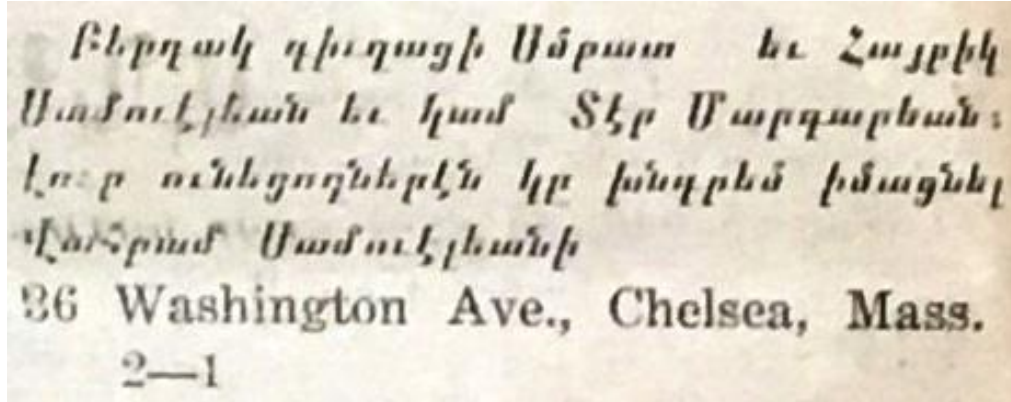 Բերդակ գիւղացի Սմբատ եւ Հայրիկ
Սամուէլեան եւ կամ Տէր Մարգարեան։
Լուր ունեցողներէն կը խնդրեմ իմացնել
Վահրամ Սամուէլեանի
36 Washington Ave., Chelsea, Mass.
2—1